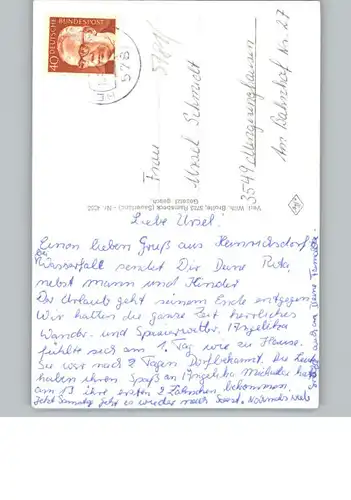 DEUTSCHE BUNDESPOST
40
578
Frau
Ursel Schmidt
3549
Am Bahnhof Nr. 27
Verl. Wilh. Drolte, 5789 Ramsbeck (Sauerland) - Nr. 425
Gesetzl. gesch.
Liebe Ursel!
Einen lieben Gruß aus Heinrichsdorf
bei
Wasserfall sendet Dir Deine Ruta
nebst Mann und Kinder
Der Urlaub geht seinem Ende entgegen
Wir hatten die ganze Zeit herrliches
Wander- und Spazierwetter. Angelika
fühlte sich am 1. Tag wie zu Hause.
Sie war nach 2 Tagen Dorfbekannt. Die Leute
haben ihren Spaß an Angelika. Michaela hat
am 13 ihre ersten 2 Zähnchen bekommen.
Jetzt Samstag geht es wieder nach Soest. Nochmals viele
Grüße auch an Deine Familie